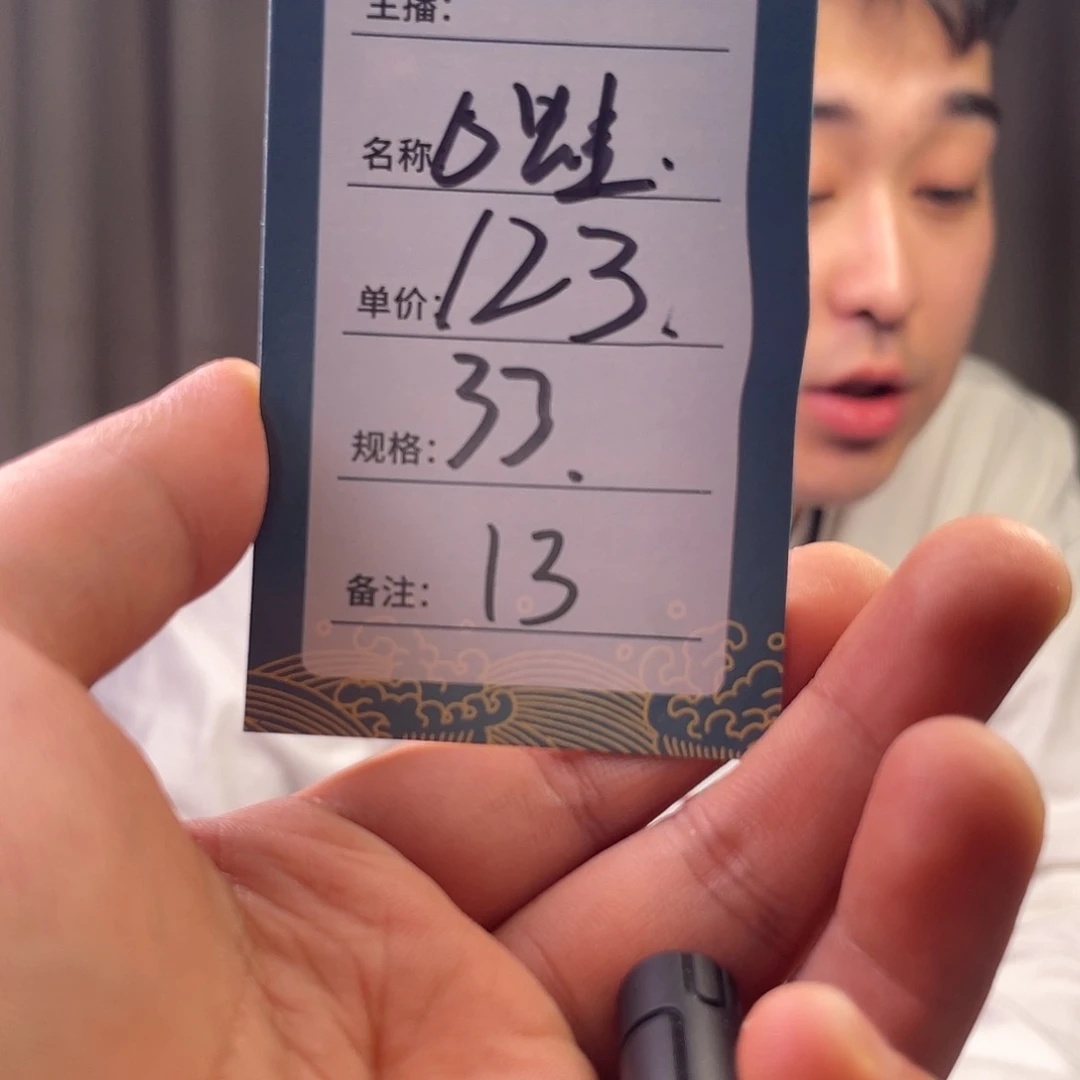 主播：
名称 6蛙.
单价：123.
规格：33.
备注：13